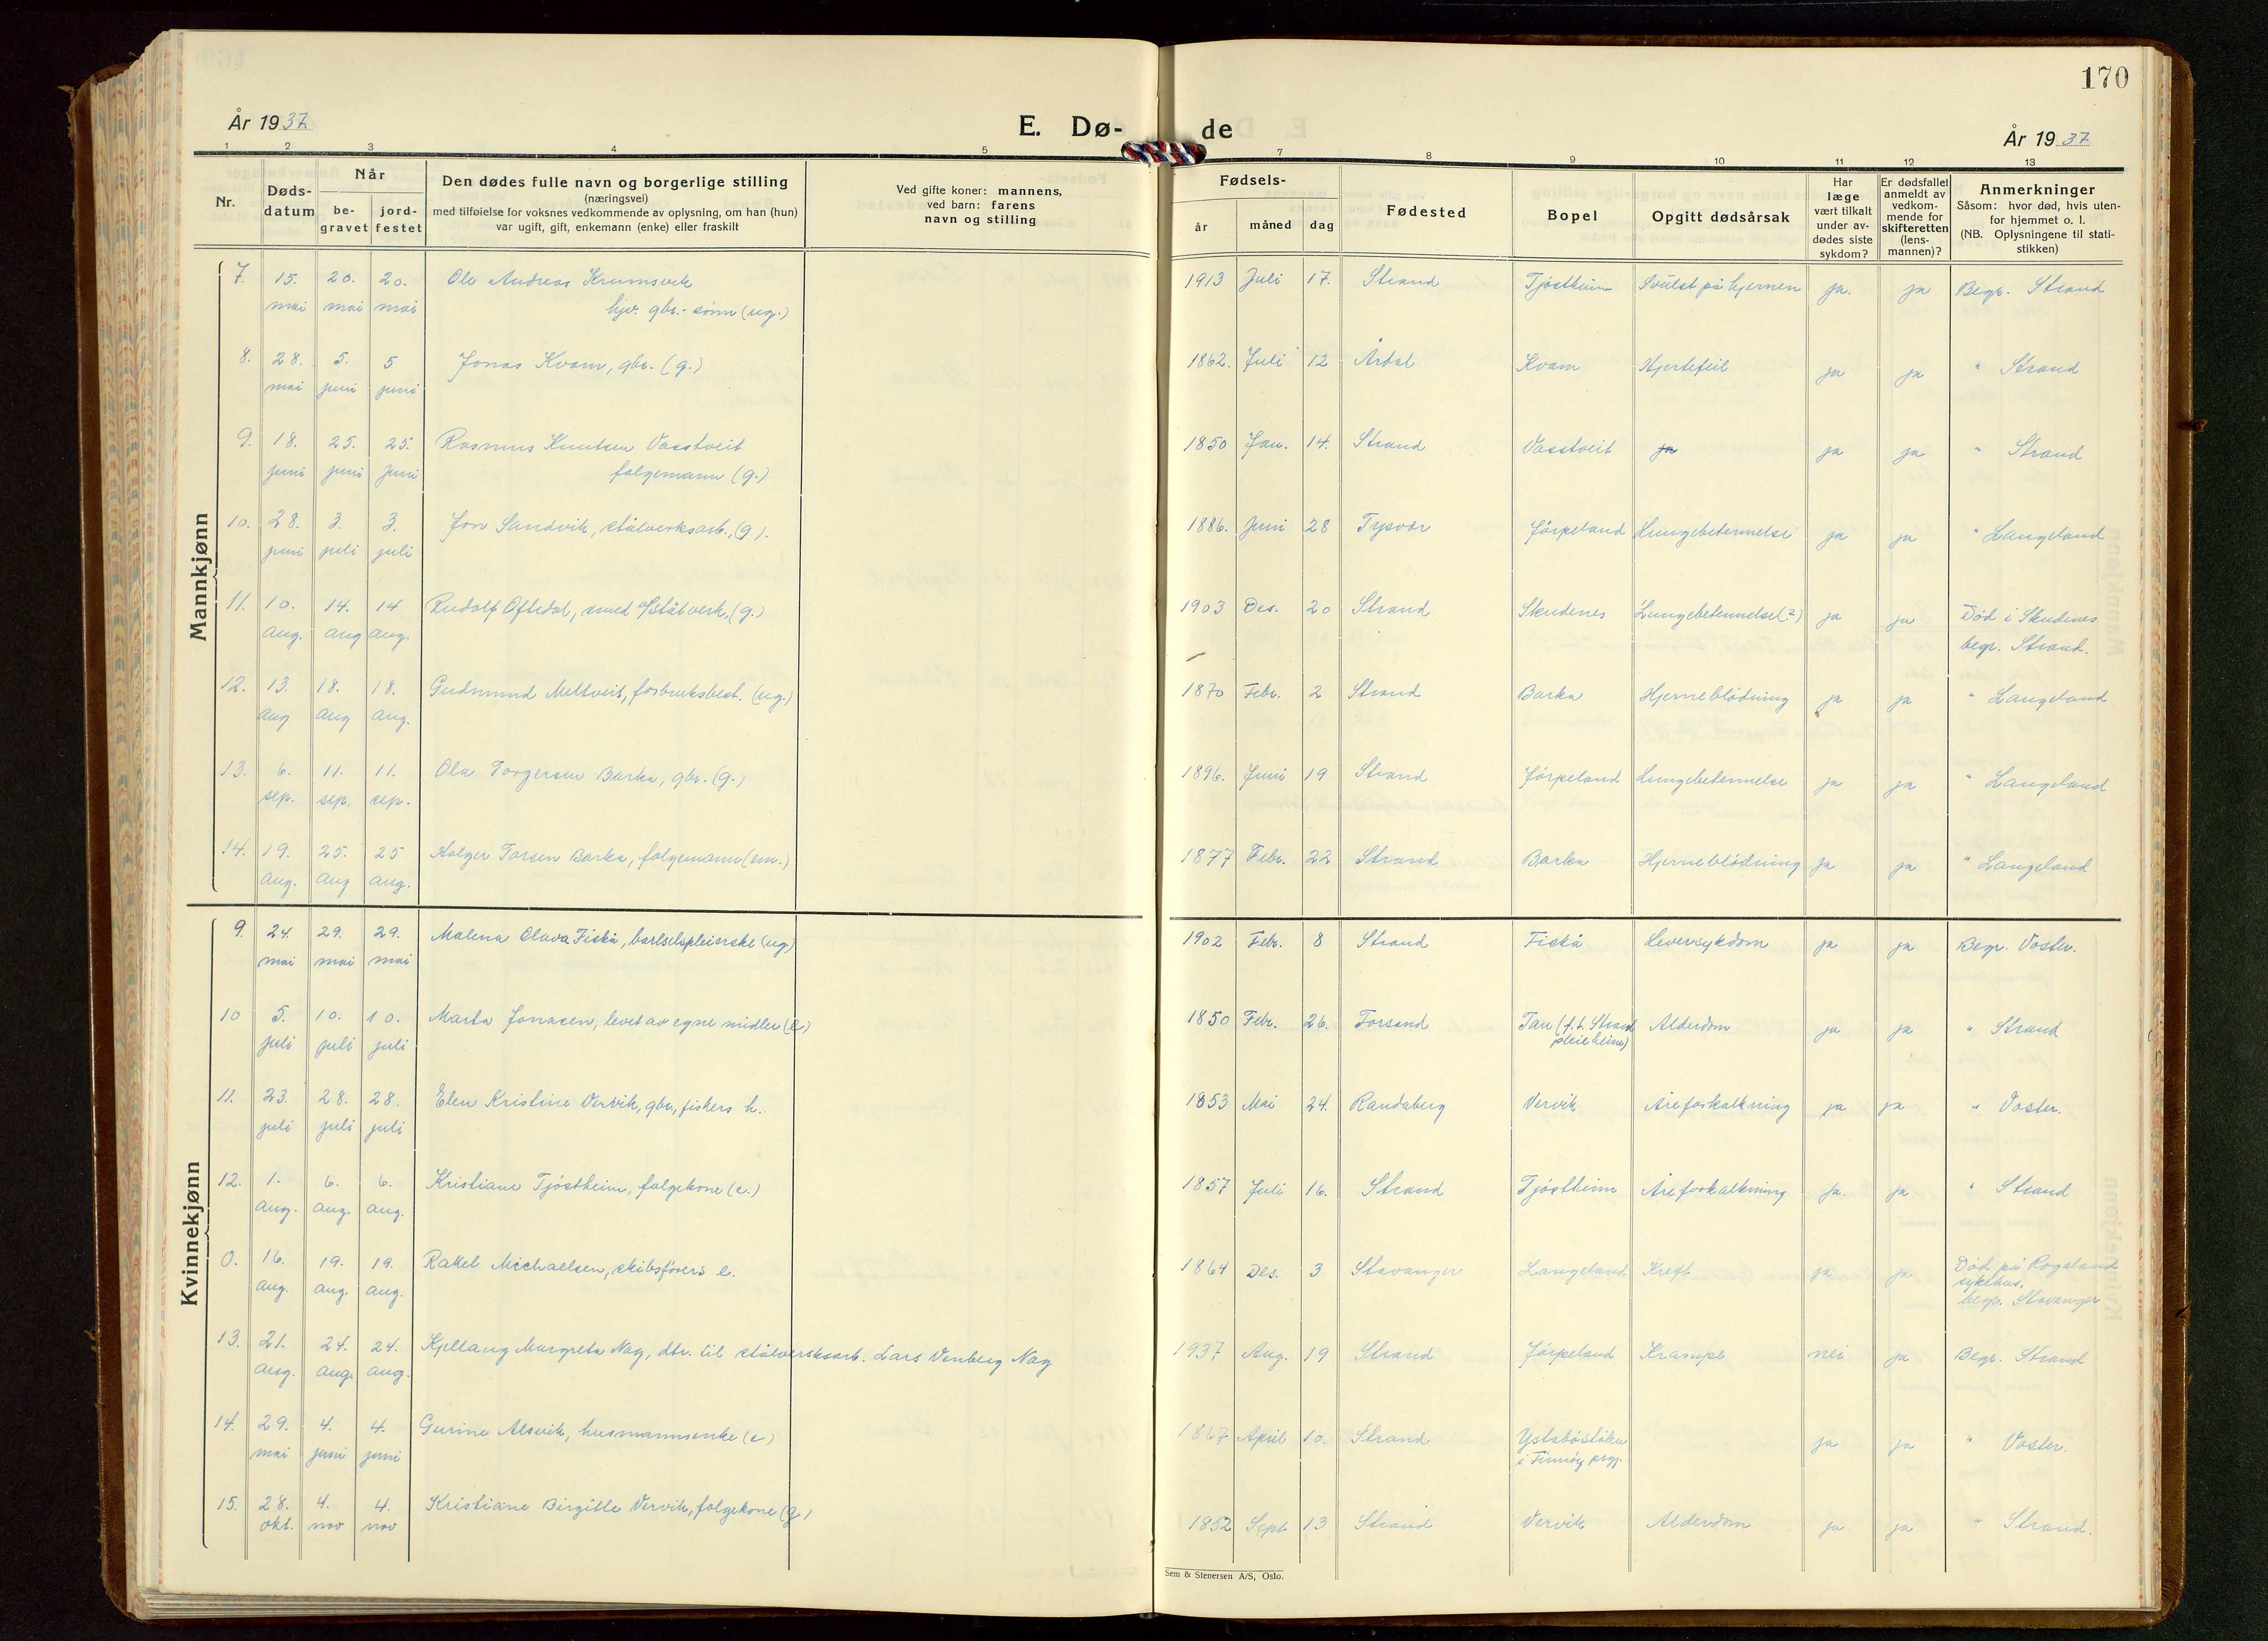 170
År 1937
E. Dø-
de
År 1937
1 2 3 4 5 7 8 9 10 11 12 13
Nr.
Døds-
datum
Når
be-
gravet
jord-
festet
Den dødes fulle navn og borgerlige stilling
(næringsvei)
med tilføielse for voksnes vedkommende av oplysning, om han (hun)
var ugift, gift, enkemann (enke) eller fraskilt
Ved gifte koner: mannens,
ved barn: farens
navn og stilling
Fødsels-
år måned dag
Fødested
Bopel
Opgitt dødsårsak
Har
læge
vært tilkalt
under av-
dødes siste
sykdom?
Er dødsfallet
anmeldt av
vedkom-
mende for
skifteretten
(lens-
mannen)?
Anmerkninger
Såsom: hvor død, hvis uten-
for hjemmet o. l.
(NB. Oplysningene til stati-
stikken)
Mannkjønn
7. 15. 20. 20. Ole Andreas Krumsvik 1913 Juli 17. Strand Tjøstheim Svulst på hjernen ja. ja Begr. Strand
mai mai mai hjv. gbr.-sønn (ug.)
8. 28. 5. 5 Jonas Kvam, gbr. (g.) 1862. Juli 12 Årdal Kvam Hjertefeil ja ja " Strand
mai juni juni
9. 18. 25. 25. Rasmus Knutsen Vasstveit 1850 Jan. 14. Strand Vasstveit ja ja ja " Strand
juni juni juni folgemann (g.)
10. 28. 3. 3. Jon Sandvik, stålverksarb., (g). 1886. Juni 28 Tysvær Jørpeland Lungebetennelse ja ja " Langeland
juni juli juli
11. 10. 14. 14 Rudolf Oftedal, smed v/Stålverk, (g.) 1903 Des. 20 Strand Skudenes Lungebetennelse(?) ja ja Død i Skudenes
aug. aug aug. begr. Strand.
12. 13. 18. 18. Gudmund Meltveit, forbruksbest. (ug.) 1870 Febr. 2 Strand Barka Hjerneblødning ja ja " Langeland
aug aug aug.
13. 6. 11. 11. Ola Torgersen Barka, gbr. (g.) 1896. Juni 19 Strand Jørpeland Lungebetennelse ja ja " Langeland
sep. sep. sep.
14. 19. 25. 25 Holger Torsen Barka, folgemann (em.) 1877 Febr. 22 Strand Barka Hjerneblødning ja ja " Langeland
aug. aug aug.
Kvinnekjønn
9. 24. 29. 29. Malena Olava Fiskå, barselspleierske (ug) 1902 Febr. 8 Strand Fiskå Leversykdom ja ja Begr. Voster.
mai mai mai
10 5. 10. 10. Marta Jonasen, levet av egne midler (e) 1850 Febr. 26. Forsand Tau (f.t. Strand Alderdom ja ja " Strand
juli juli juli pleieheim)
11. 23. 28. 28. Elen Kristine Vervik, gbr., fiskers h. 1853 Mai 24. Randaberg Vervik Åreforkalkning ja ja " Voster.
juli juli juli
12. 1. 6. 6. Kristiane Tjøstheim, folgekone (e.) 1857 Juli 16. Strand Tjøstheim Åreforkalkning ja. ja " Strand
aug. aug. aug.
0. 16. 19. 19. Rakel Michaelsen, skibsførers e. 1864 Des. 3 Stavanger Langeland Kreft ja ja Død på Rogaland
aug. aug. aug. sykehus.
begr. Stavanger
13. 21. 24. 24. Kjellaug Margreta Nag, dtr. til stålverksarb. Lars Venberg Nag 1937 Aug. 19 Strand Jørpeland Krampe nei ja Begr. Strand
aug. aug. aug.
14. 29. 4. 4. Gurine Alsvik, husmannsenke (e) 1867 April 10. Strand Ystabøstølen ja ja " Voster.
mai juni juni i Finnøy prgj.
15. 28. 4. 4. Kristiane Birgitte Vervik, folgekone (g) 1852 Sept 13 Strand Vervik Alderdom ja ja " Strand.
okt. nov nov
Sem & Stenersen A/S, Oslo.